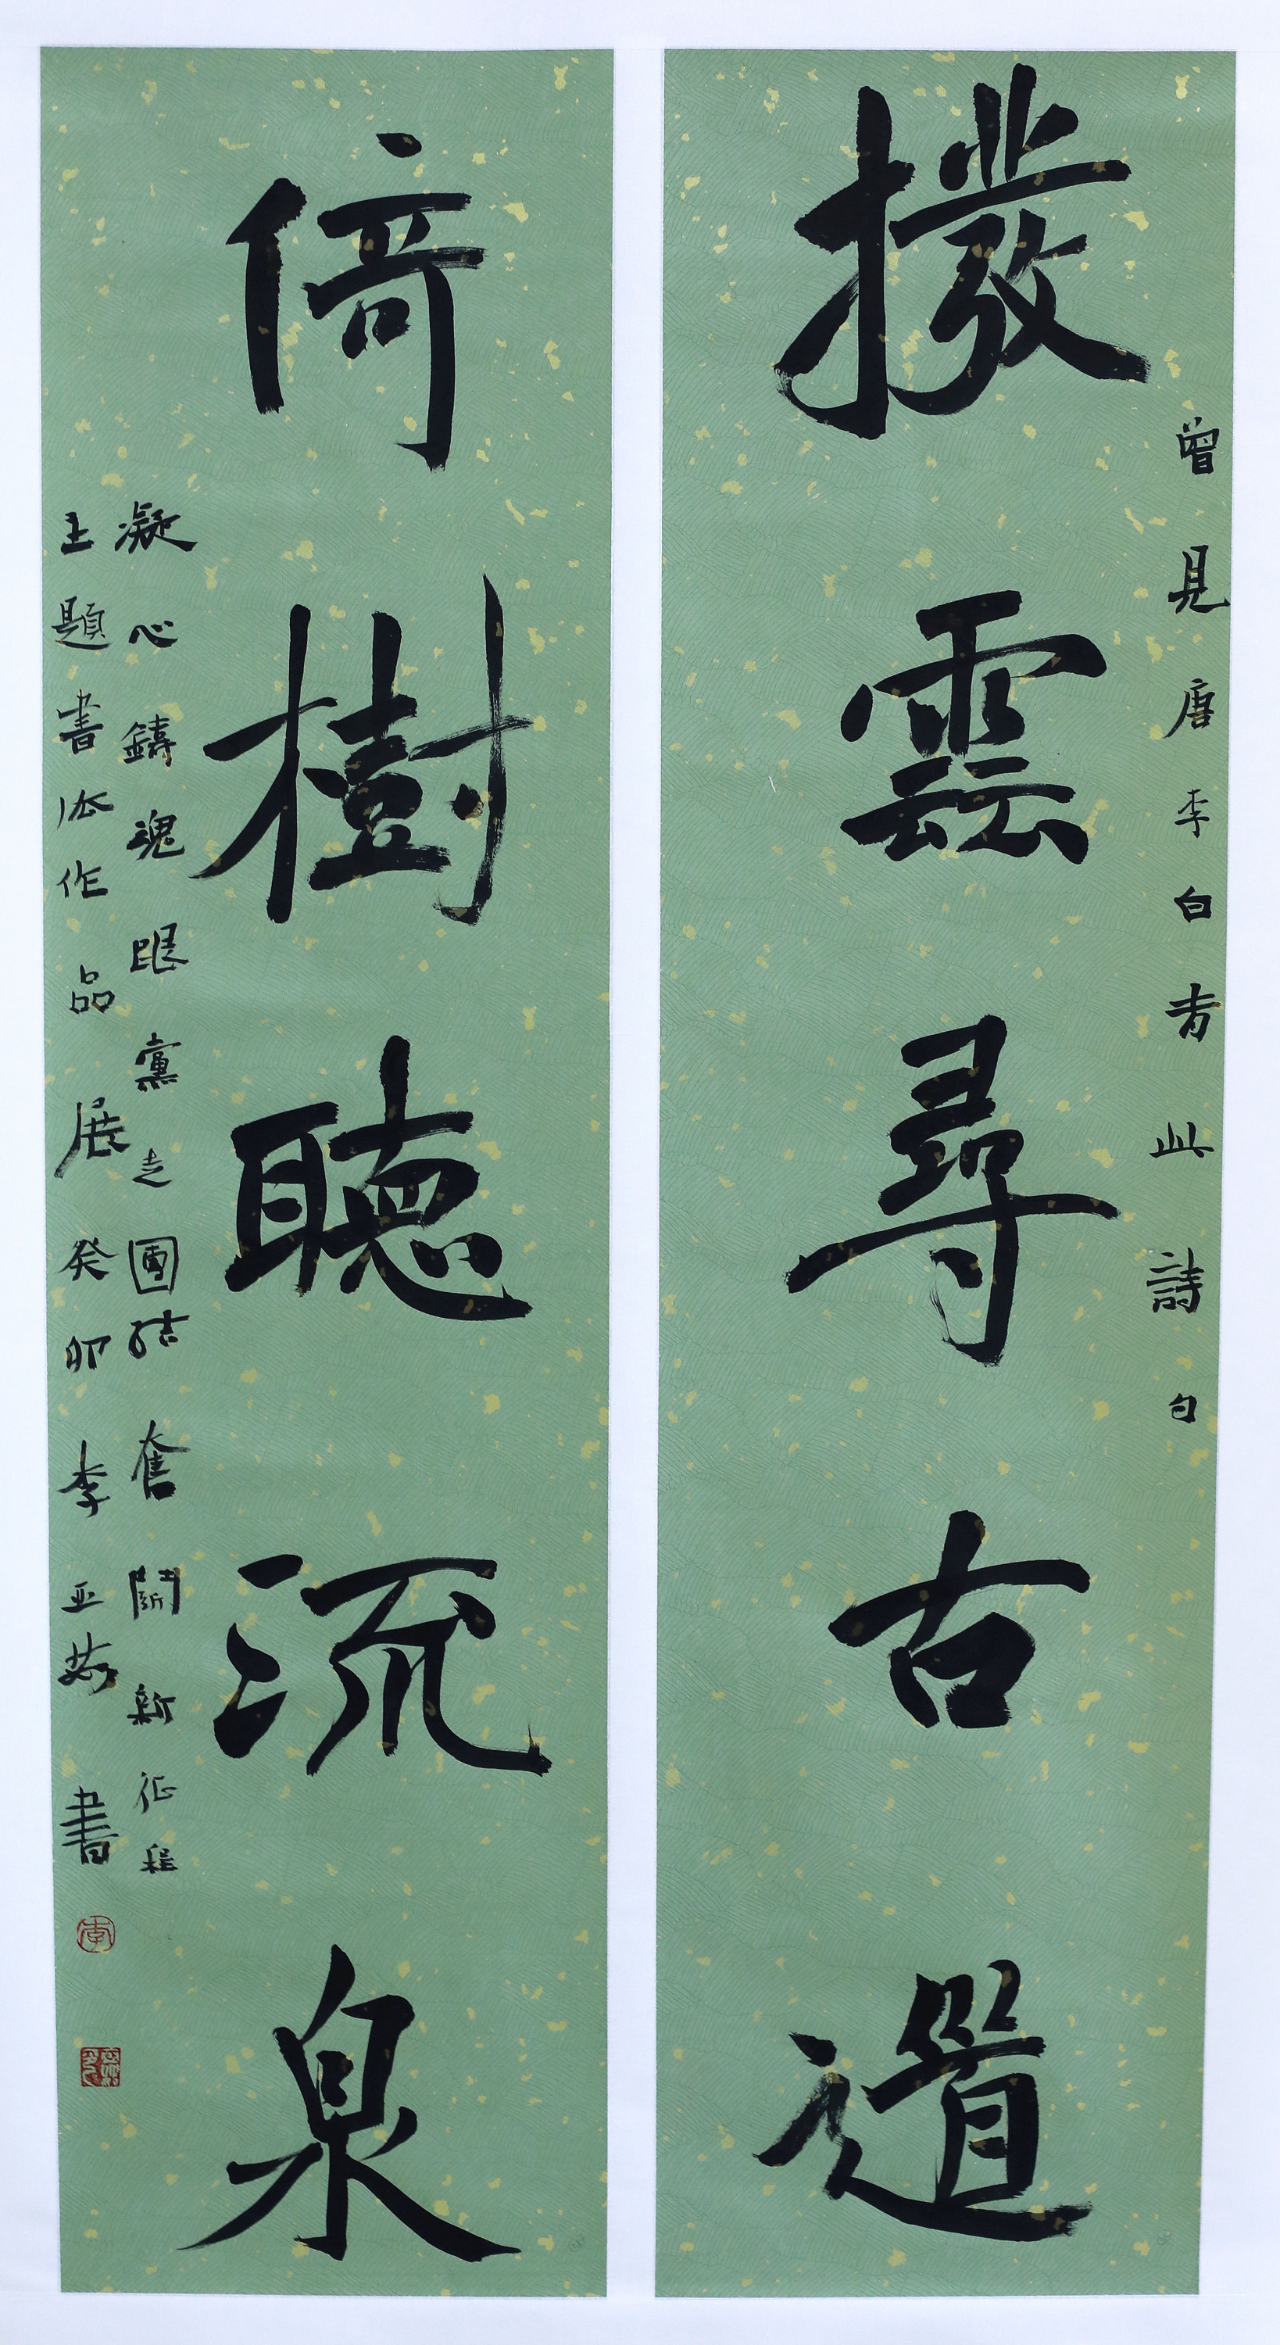 撥雲尋古道
曾見唐李白有此詩句
倚樹聽流泉
凝心鑄魂跟黨走團結奮鬭新征程
主題書法作品展癸卯李亞書
李